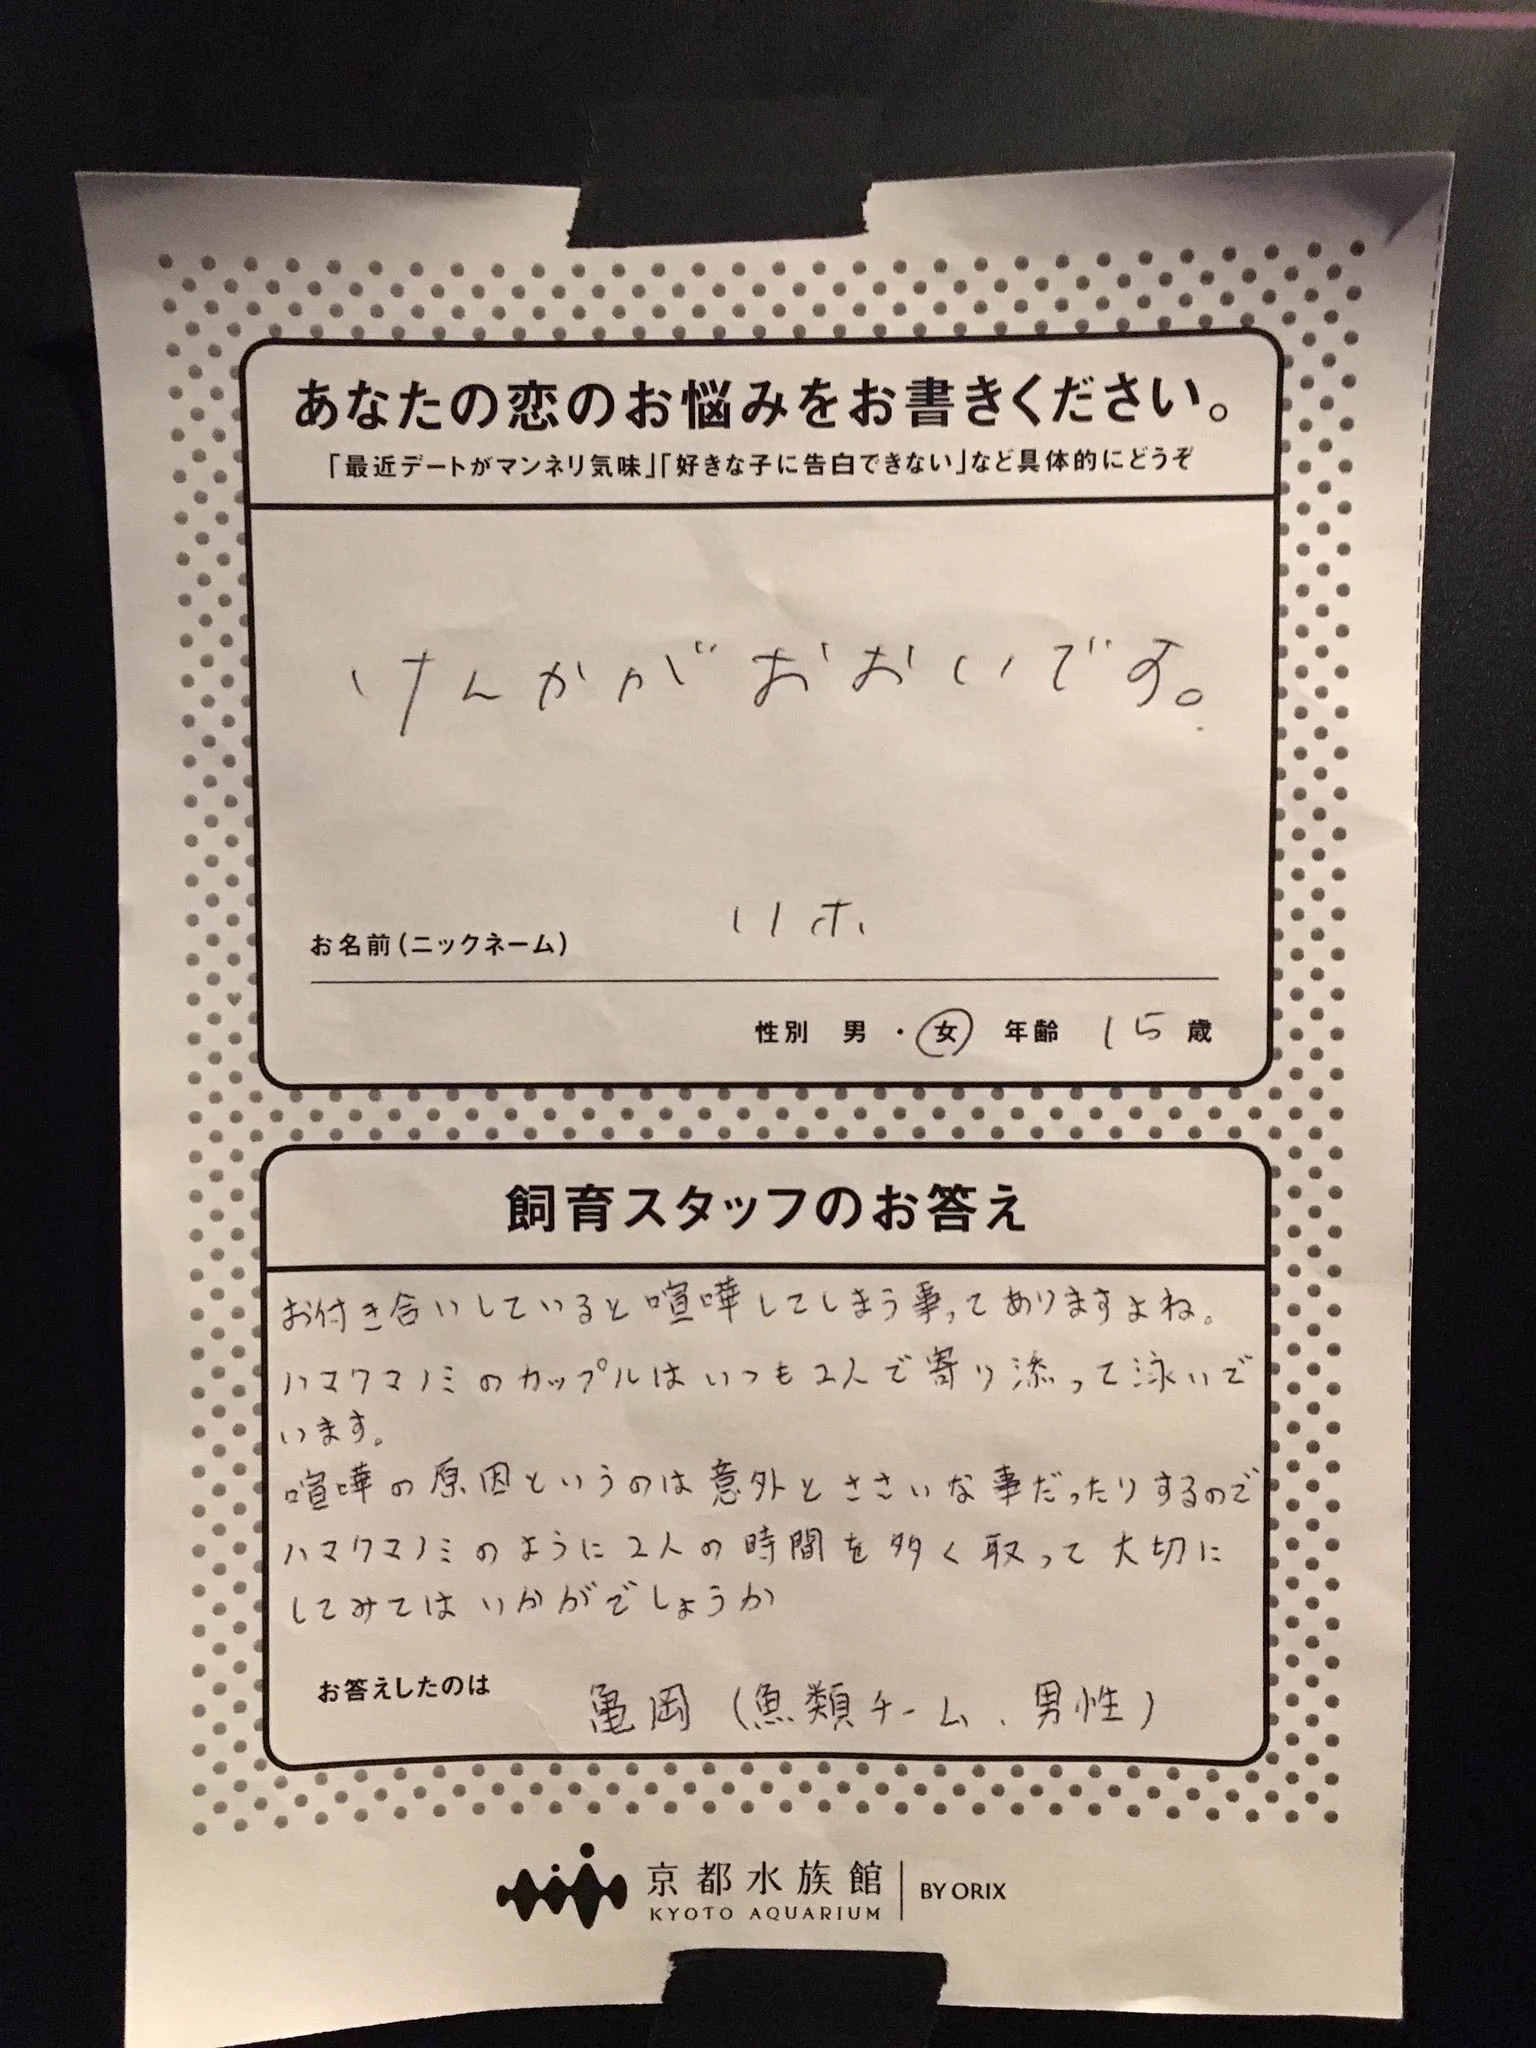 あなたの恋のお悩みをお書きください。
「最近デートがマンネリ気味」「好きな子に告白できない」など具体的にどうぞ
けんかがおおいです。
お名前(ニックネーム) リホ
性別 男・女 年齢 15歳
飼育スタッフのお答え
お付き合いしていると喧嘩してしまう事ってありますよね。
ハマクマノミのカップルはいつも2人で寄り添って泳いで
います。
喧嘩の原因というのは意外とささいな事だったりするので
ハマクマノミのように2人の時間を多く取って大切に
してみてはいかがでしょうか
お答えしたのは 亀岡(魚類チーム、男性)
京都水族館 BY ORIX
KYOTO AQUARIUM